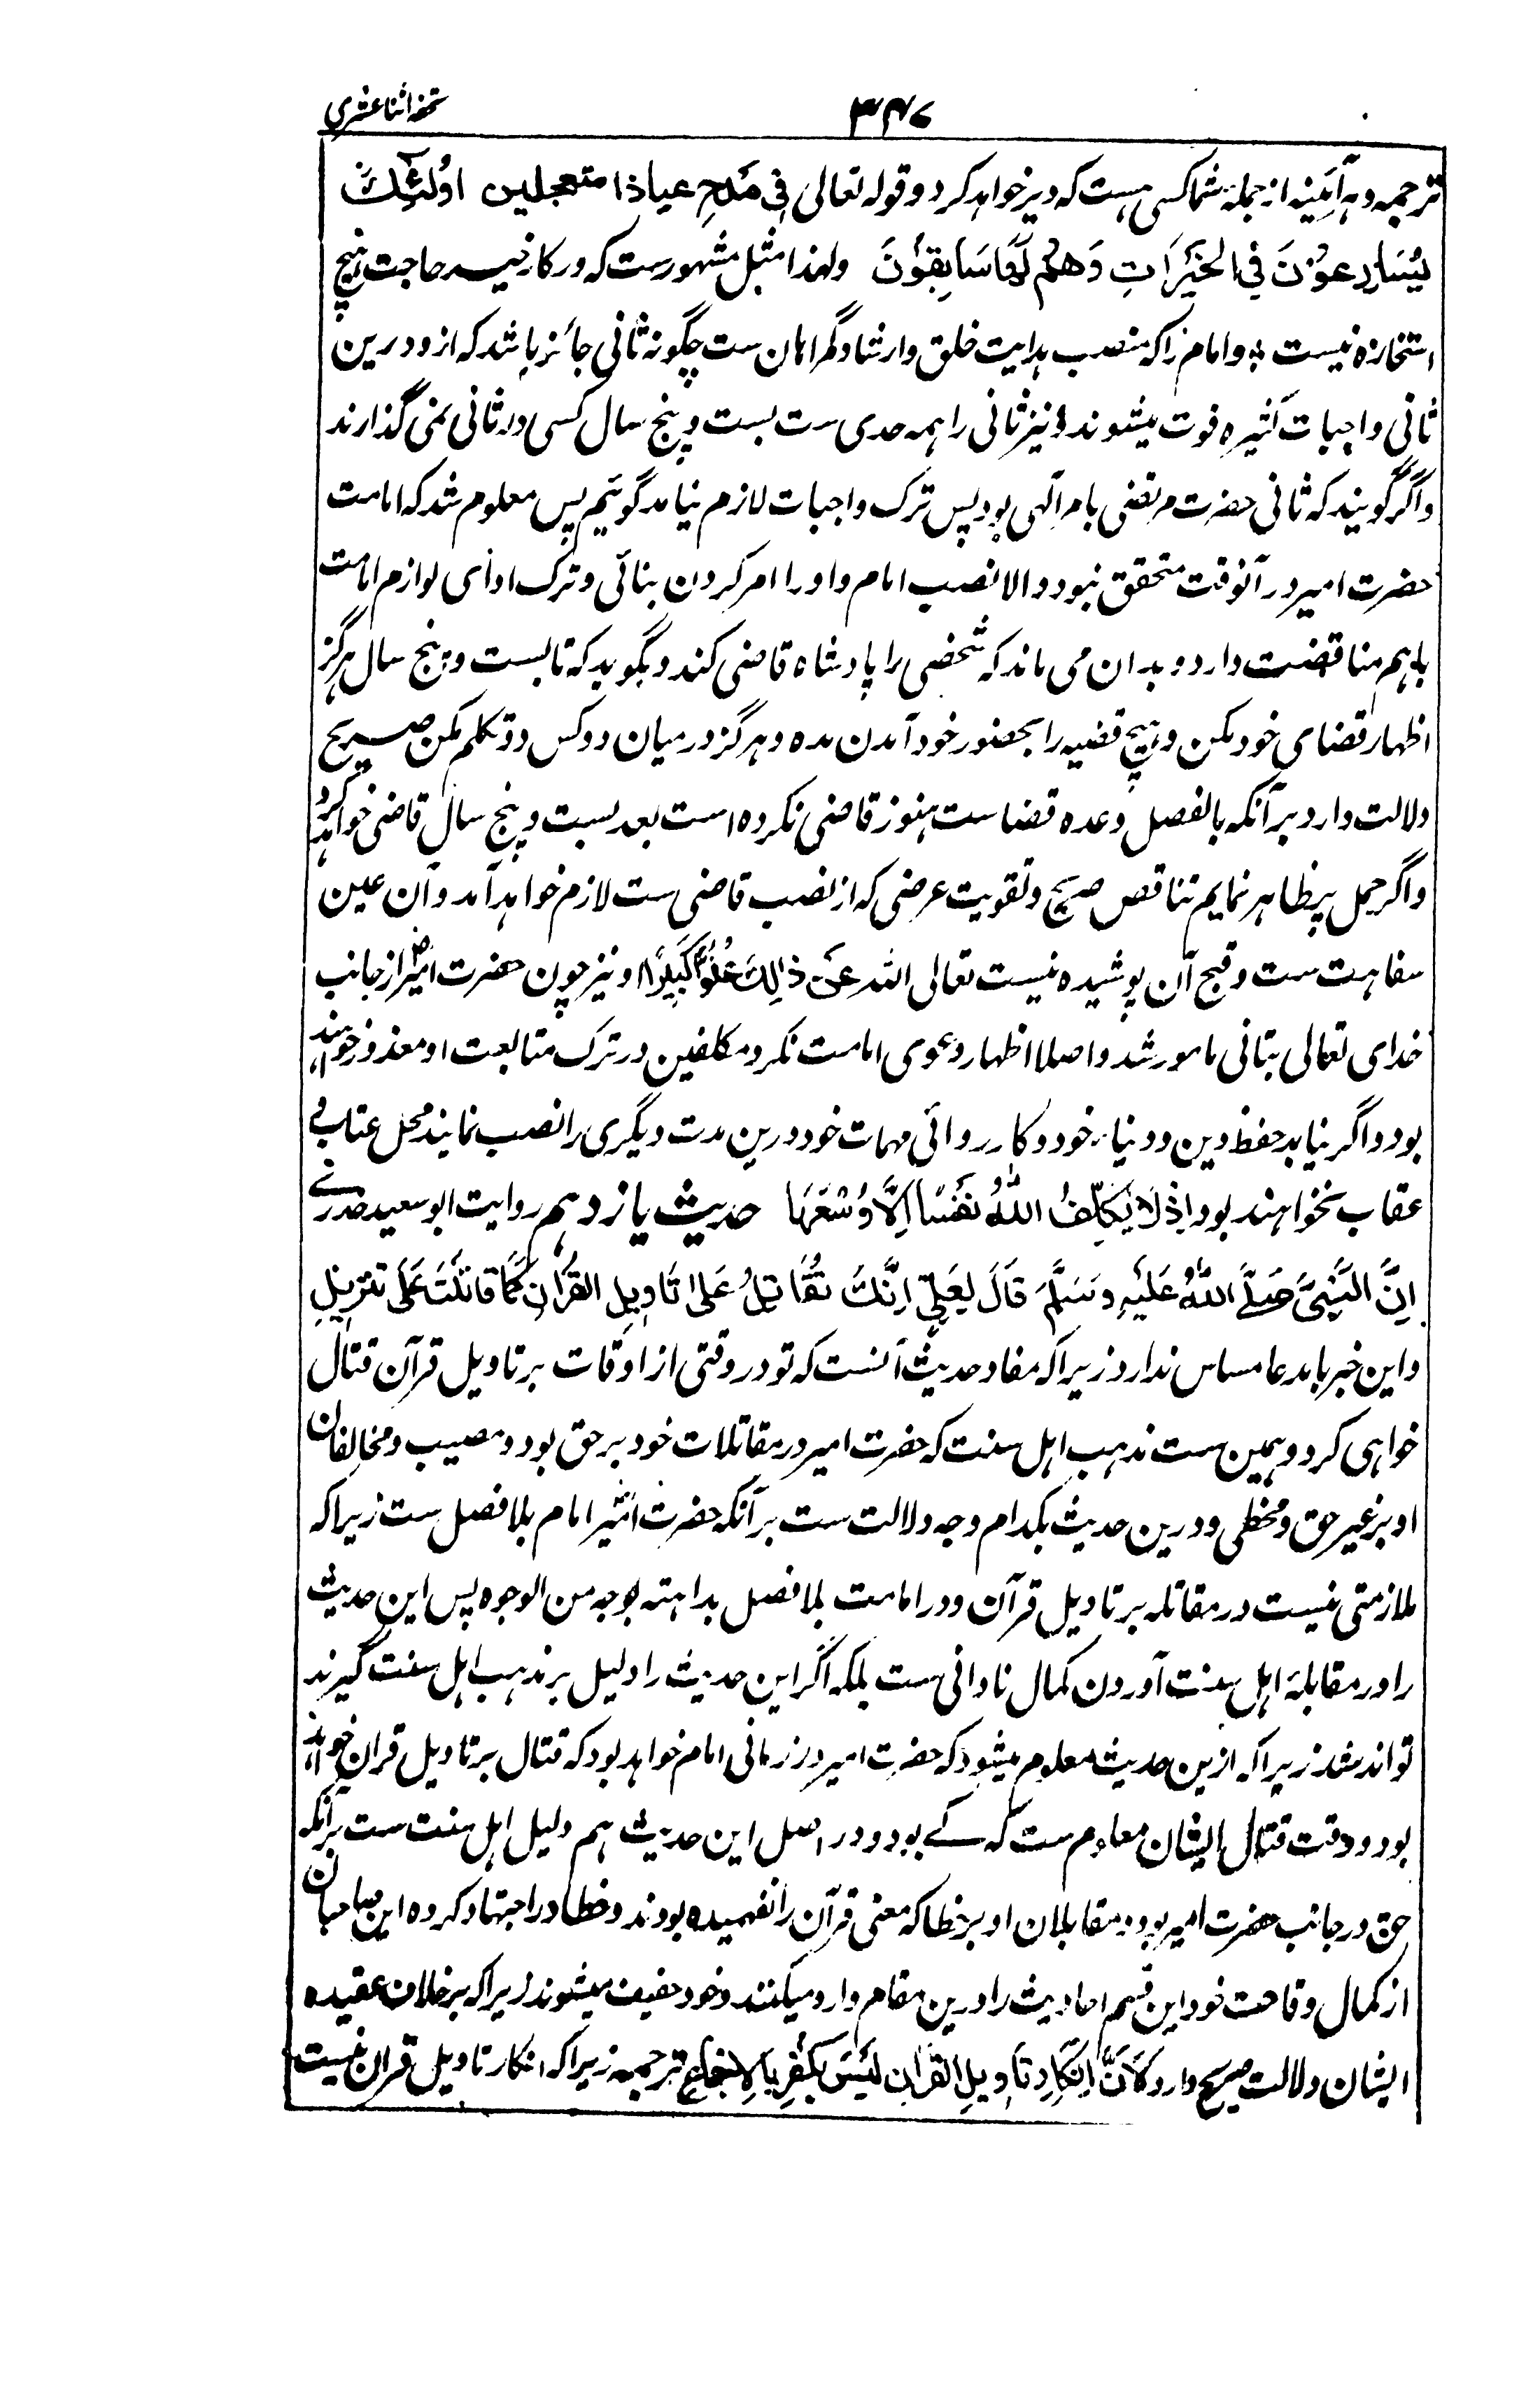 تحفه اثنا عشری ۳۴۷
ترجمه و هر آئینه از جمله شما کسی هست که دیر خواهد کرد و قوله تعالی فی مَدحِ عباد متعجلین اُولٰئِكَ
یُسَارِعُوْنَ فِی الْخَیْرَاتِ وَهُمْ لَهَا سَابِقُوْنَ ولهذا مثل مشهورست که در کار خیر حاجت هیچ
استخاره نیست و امام را که منصب هدایت خلق و ارشاد گمراهان ست چگونه تانی جائز باشد که از و درین
تانی واجبات کثیره فوت میشوند و نیز تانی را همه حدی ست بست و پنج سال کسی در تانی نمی گذارند
و اگر گویند که تانی حضرت مرتضی بامر الٓهی بود پس ترک واجبات لازم نیاید گوئیم پس معلوم شد که امامت
حضرت امیر در آنوقت متحقق نبود والا نصب امام و او را امر کردن بتانی و ترک ادای لوازم امامت
باهم مناقضت دارد و بدان می ماند که شخصی را پادشاه قاضی کند و بگوید که تا بست و پنج سال هرگز
اظهار قضای خود مکن و هیچ قضیه را بحضور خود آمدن مده و هرگز درمیان دو کس تکلم مکن صریح
دلالت دارد بر آنکه بالفصل وعده قضاست هنوز قاضی نکرده است بعد بست و پنج سال قاضی خواهد کرد
و اگر حمل بر ظاهر نمایم تناقص صریح و تفویت غرضی که از نصب قاضی ست لازم خواهد آمد و آن عین
سفاهت ست و قبح آن پوشیده نیست تعالی الله عَنْ ذٰلِكَ عُلُوًّا كَبِیْرًا و نیز چون حضرت امیرؓ از جانب
خدای تعالی بتانی مامور شد و اصلا اظهار دعوی امامت نکرد مکلفین در ترک متابعت او معذور خواهند
بود و اگر بنابر حفظ دین و دنیا، خود و کار روائی مهمات خود درین مدت دیگری را نصب نمایند محل عتاب و
عقاب نخواهند بود اِذْ لَا یُكَلِّفُ اللّٰهُ نَفْسًا اِلَّا وُسْعَهَا حدیث یازدهم روایت ابوسعید خدری
اِنَّ النَّبِیَّ صَلَّی اللّٰهُ عَلَیْهِ وَسَلَّمَ قَالَ لِعَلِیٍّ اِنَّكَ تُقَاتِلُ عَلٰی تَاوِیلِ القُرْاٰنِ كَمَا قَاتَلْتَ عَلٰی تَنْزِیلِ
و این خبر با مدعا مساس ندارد زیرا که مفاد حدیث آنست که تو در وقتی از اوقات بر تاویل قرآن قتال
خواهی کرد و همین ست مذهب اهل سنت که حضرت امیر در مقاتلات خود بر حق بود و مصیب و مخالفان
او بر غیر حق و مخطی و درین حدیث بکدام وجه دلالت ست بر آنکه حضرت امیر امام بلا فصل ست زیرا که
ملازمتی نیست در مقاتله بر تاویل قرآن و در امامت بلا فصل بداهته بوجه من الوجوه پس این حدیث
را در مقابلۀ اهل سنت آوردن کمال نادانی ست بلکه اگر این حدیث را دلیل بر مذهب اهل سنت گیرند
تواند شد زیرا که ازین حدیث معلوم میشود که حضرت امیر در زمانی امام خواهد بود که قتال بر تاویل قران خواهد
بود و وقت قتال ایشان معلوم ست که کے بود و در اصل این حدیث هم دلیل اهل سنت ست برآنکه
حق در جانب حضرت امیر بود و مقابلان او بر خطا که معنی قرآن را نفهمیده بودند و خطا در اجتهاد کرده این صاحبان
از کمال وقاحت خود این قسم احادیث را درین مقام وارد میکنند و خود خفیف میشوند زیرا که بر خلاف عقیده
ایشان دلالت صریح دارد لِاَنَّ اِنْكَارَ تَاْوِیلِ القُرْاٰنِ لَیْسَ بِكُفْرٍ بِالْاِجْمَاعِ ترجمه زیرا که انکار تاویل قران نیست